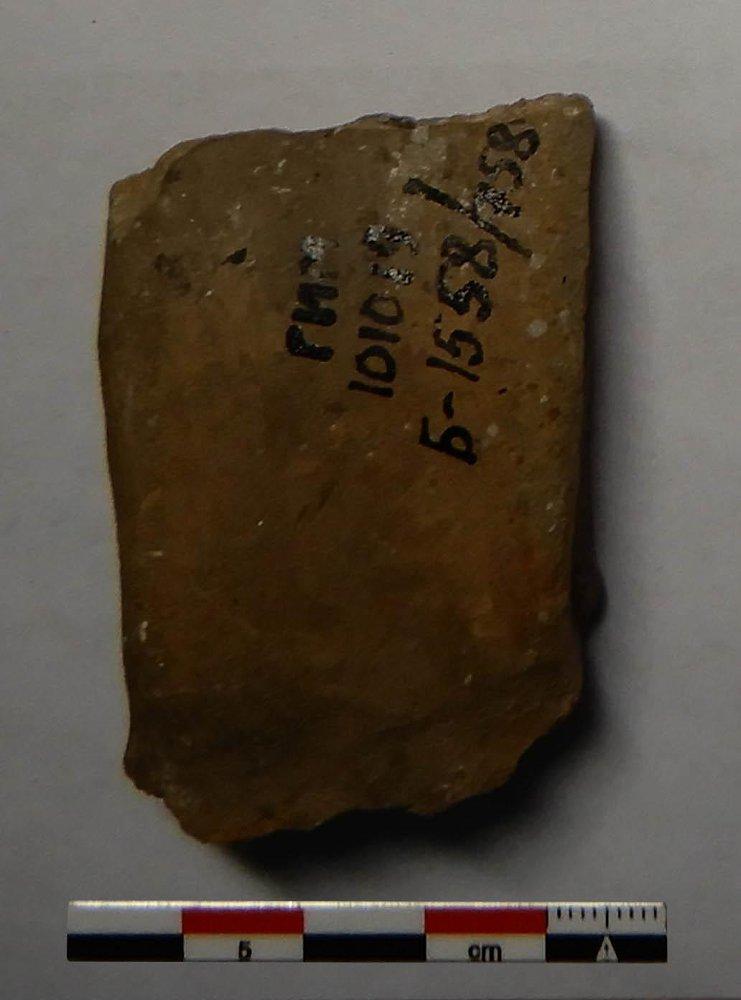 ГИМ
101019
Б-1558/458
5 cm